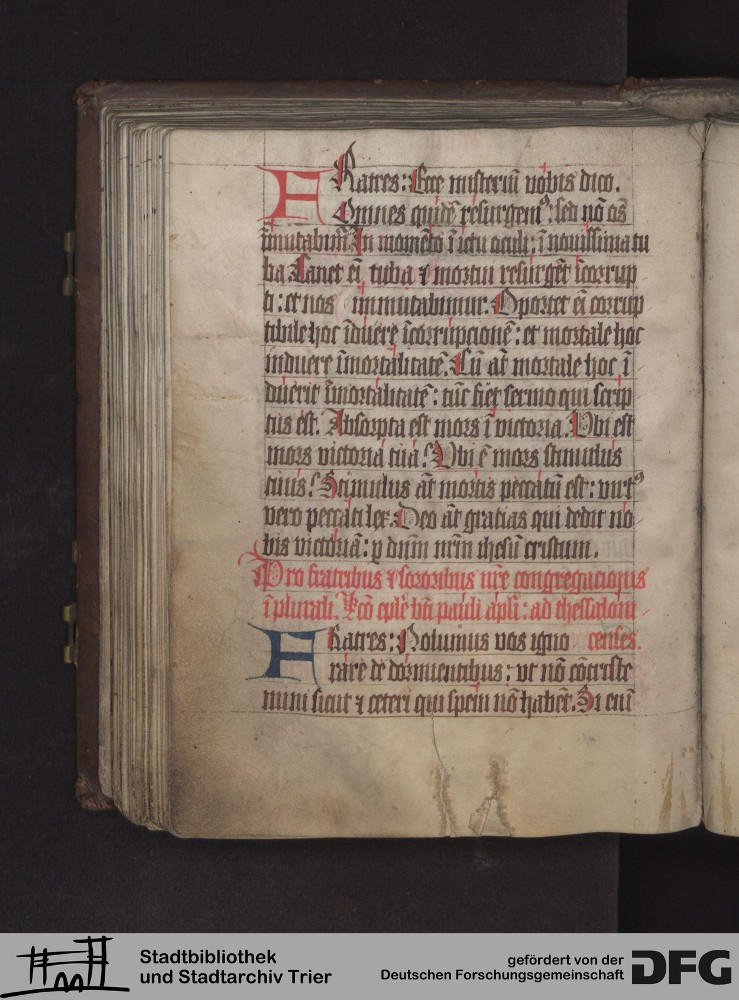 FRatres: Ecce misteriū vobis dico.
Omnes quidē resurgemꝰ: sed nō oēs
īmutabim̄. In momēto ī ictu oculi: ī nouissima tu
ba. Canet eī tuba ⁊ mortui resurgēt īcorrup
ti: et nos immutabimur. Oportet eī corrup
tibile hoc īduere īcorrupcionē: et mortale hoc
induere īmortalitatē. Cū aūt mortale hoc ī
duerit īmortalitatē: tūc fiet sermo qui scrip
tus est. Absorpta est mors ī victoria. Vbi est
mors victoria tua? Vbi ē mors stimulus
tuus? Stimulus aūt mortis peccatū est: virtꝰ
vero peccati lex. Deo aūt gratias qui dedit no
bis victoriā: ꝑ dn̄m nr̄m ihesū cristum.
Pro fratribus ⁊ sororibus nr̄e congregacionis
ī plurali. Lcō eplē bti pauli apli: ad thessaloni
FRatres: Nolumus vos igno censes.
rare de dormientibus: vt nō cōtriste
mini sicut ⁊ ceteri qui spem nō habēt. Si enī
Stadtbibliothek
und Stadtarchiv Trier
gefördert von der
Deutschen Forschungsgemeinschaft
DFG